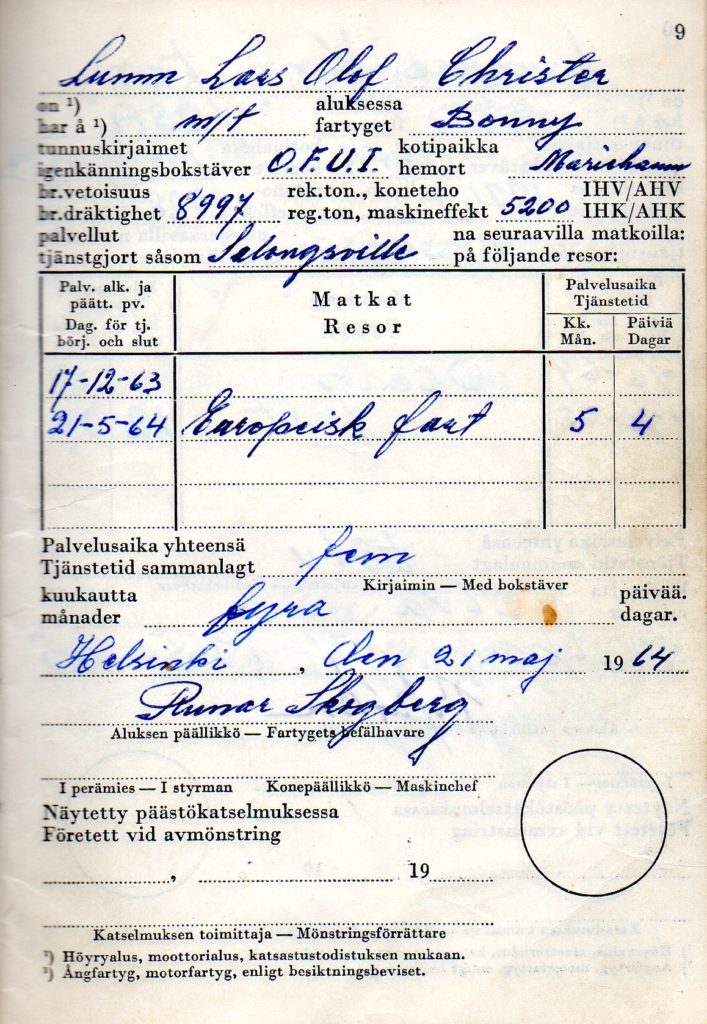 9
Lumm Lars Olof Christer
on ¹) aluksessa
har å ¹) m/t fartyget Bonny
tunnuskirjaimet kotipaikka
igenkänningsbokstäver O.F.U.I. hemort Mariehamn
br.vetoisuus rek.ton., koneteho IHV/AHV
br.dräktighet 8997 reg.ton, maskineffekt 5200 IHK/AHK
palvellut na seuraavilla matkoilla:
tjänstgjort såsom Salongsville på följande resor:
Palv. alk. ja
päätt. pv.
Dag. för tj.
börj. och slut
Matkat
Resor
Palvelusaika
Tjänstetid
Kk. Päiviä
Mån. Dagar
17-12-63
21-5-64 Europeisk fart 5 4
Palvelusaika yhteensä
Tjänstetid sammanlagt fem
Kirjaimin — Med bokstäver
kuukautta päivää.
månader fyra dagar.
Helsinki, den 21 maj 1964
Runar Skogberg
Aluksen päällikkö — Fartygets befälhavare
I perämies — I styrman Konepäällikkö — Maskinchef
Näytetty päästökatselmuksessa
Företett vid avmönstring
, 19
Katselmuksen toimittaja — Mönstringsförrättare
¹) Höyryalus, moottorialus, katsastustodistuksen mukaan.
¹) Ångfartyg, motorfartyg, enligt besiktningsbeviset.